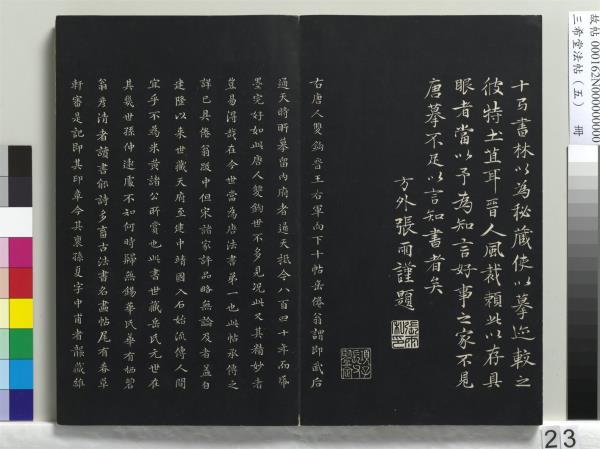 十万書林以為秘藏使以摹迹較之
彼特土苴耳晉人風裁賴此以存具
眼者當以予為知言好事之家不見
唐摹不足以言知書者矣
方外張雨謹題
右唐人雙鈎晉王右軍而下十帖岳倦翁謂即武后
通天時所摹留內府者通天抵今八百四十年而紙
墨完好如此唐人雙鈎世不多見况此又其精妙者
豈易得哉在今世當為唐法書第一也此帖承傳之
詳已具倦翁跋中但宋諸家評品略無論及者蓋自
建隆以來世藏天府至建中靖國入石始流傳人間
宜乎不為米黃諸公所賞也此書世藏岳氏元世在
其裔世孫仲遠處不知何時歸無錫華氏華有栖碧
翁彥清者讀書能詩多畜古法書名畫帖尾有春草
軒審定記即其印章今其裔孫夏字中甫者襲藏維
故帖 000162N000000000
三希堂法帖（五） 冊
23